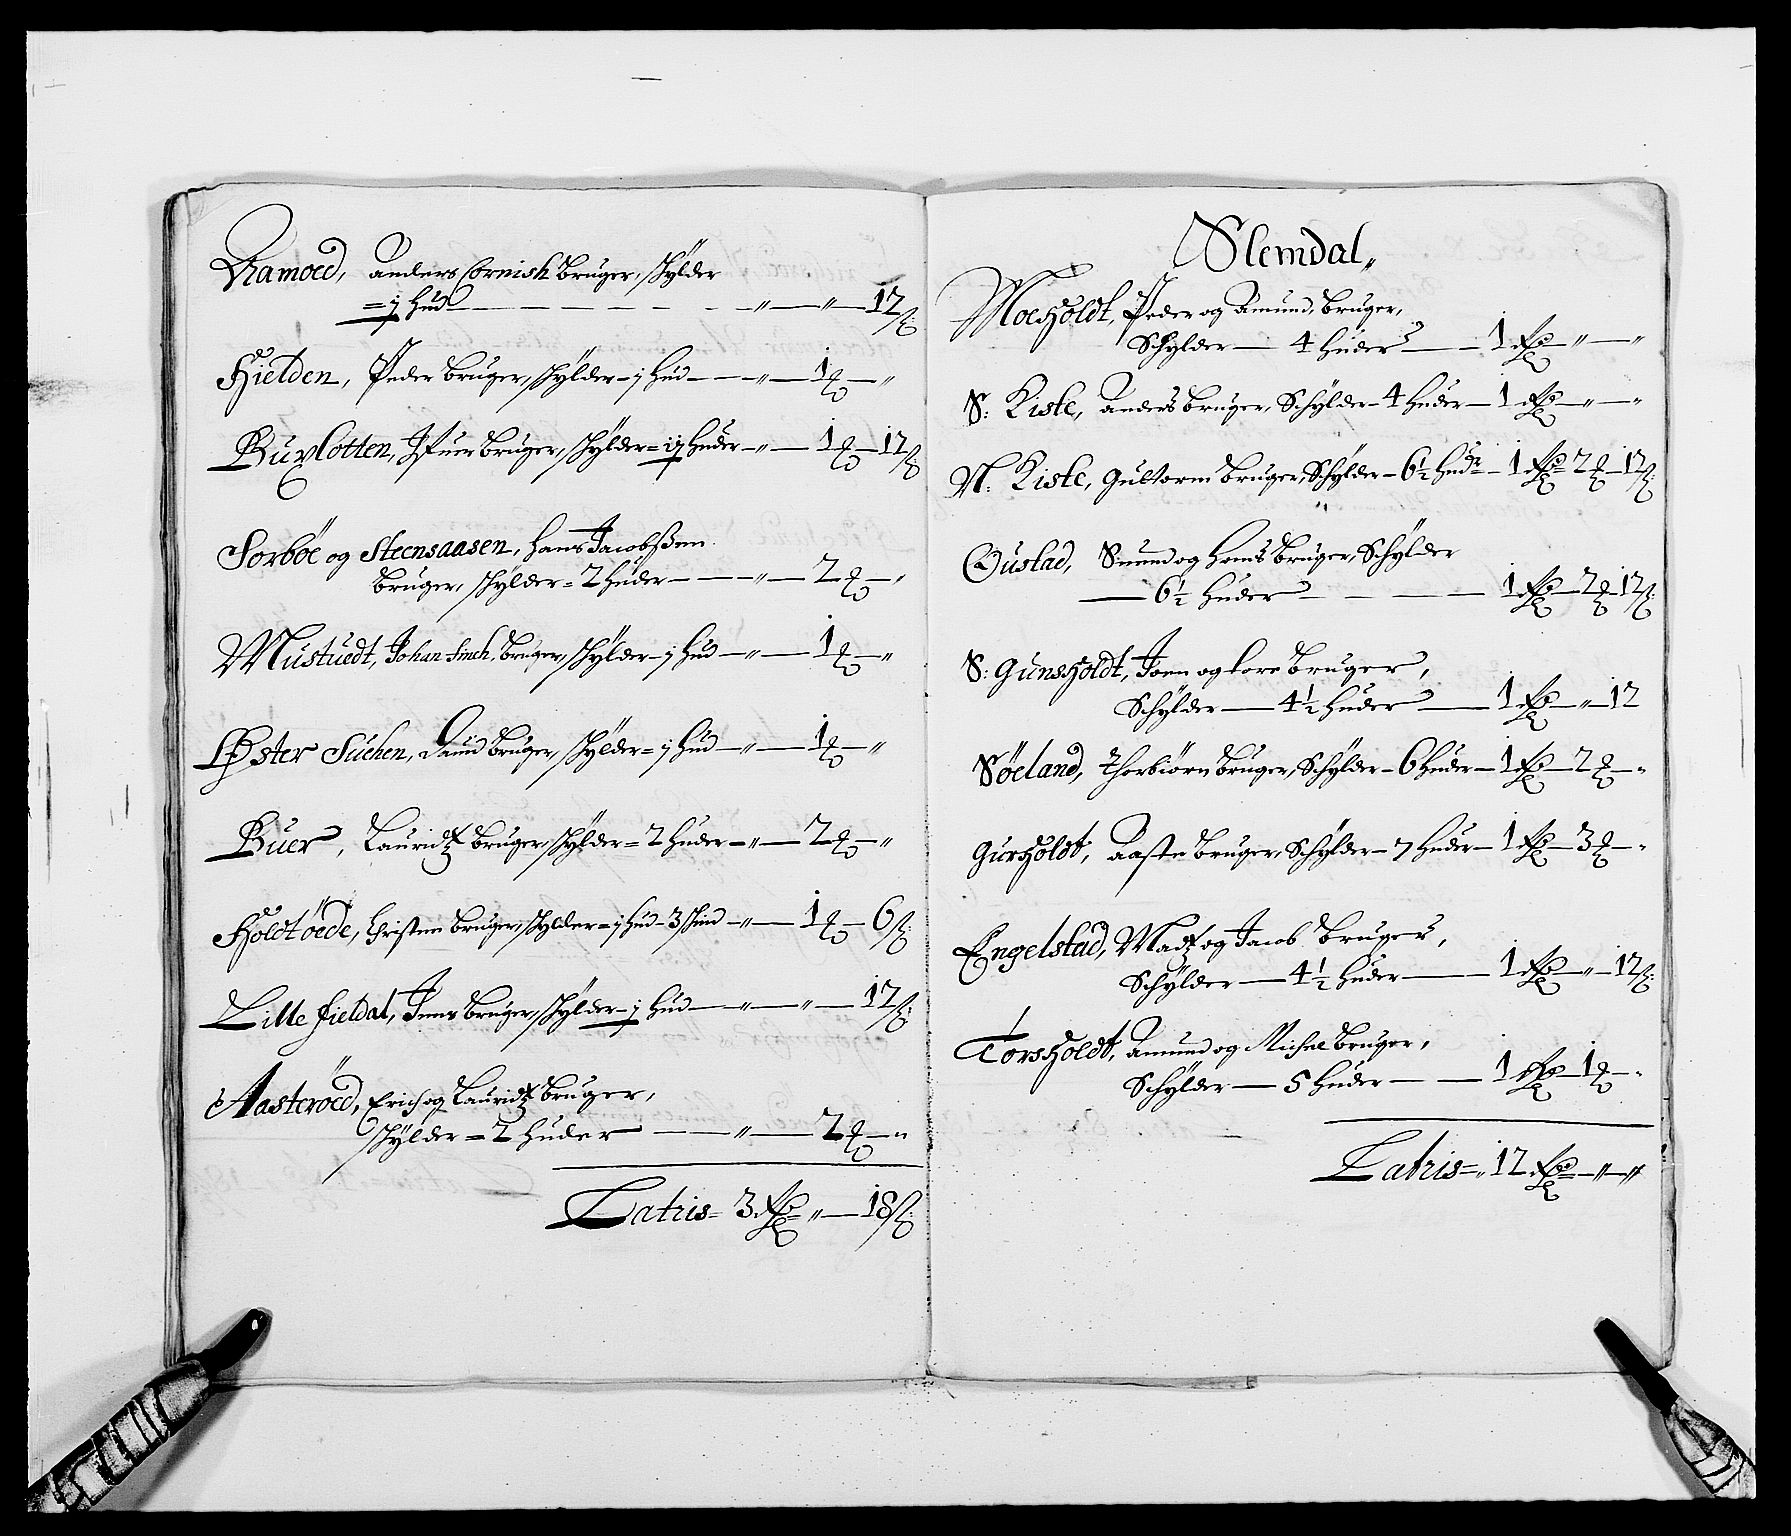 Ramoed, Anders Cornish bruger, skÿlder
= ½ hud — — — — — — „ — „ — 12 ß:
Hielden, Peder bruger, skÿlder – j hud — — „ — 1 ₰ — „
Buxlotten, Ifuer bruger, skÿlder = 1½ huder – „ — 1 ₰ — 12 ß:
Sorböe og Steensaasen, Hans Jacobsßen
bruger, skÿlder = 2 huder — — — „ — 2 ₰ — „
Mustuedt, Johan Finch, bruger, skÿlder – j hud — „ — 1 ₰ — „
Øster Suchen, Dauid bruger, skÿlder = j hud — „ — 1 ₰ — „
Buer, Lauridtz bruger, skÿlder = 2 huder – „ — 2 ₰ — „
Holdtöede, Christen bruger, skÿlder = j hud 3 skind – „ — 1 ₰ — 6 ß:
Lille fieldal, Jens bruger, skÿlder – ½ hud — „ — „ — 12 ß:
Aasteröed, Erich og Lauridtz bruger,
skÿlder = 2 huder — — „ — 2 ₰ — „
Latris = 3 Rdr – „ — 18 ß:
Slemdal„
Moeholdt, Peder og Amund, bruger,
Schÿlder — 4 huder — — 1 Rdr „ — „
S: Kiste, Anders bruger, Schÿlder – 4 huder – 1 Rdr — „ — „
N: Kiste, Gultorm bruger, Schÿlder – 6½ hudr – 1 Rdr 2 ₰ — 12 ß:
Oustad, Simund og Hans bruger, Schÿlder
— 6½ huder — — — — 1 Rdr — 2 ₰ 12 ß:
S: Gunsholdt, Joen og Tore bruger,
Schÿlder — 4½ huder — 1 Rdr „ 12
Söeland, Thorbiörn bruger, Schÿlder – 6 huder – 1 Rdr — 2 ₰ — „
Gurholdt, Aaste bruger, Schÿlder – 7 huder – 1 Rdr — 3 ₰ — „
Engelstad, Madtz og Jacob bruger,
Schÿlder — 4½ huder — 1 Rdr „ — 12 ß:
Torsholdt, Amund og Michel bruger,
Schÿlder — 5 huder — — 1 Rdr — 1 ₰ — „
Latris = „ 12 Rdr — „ — „